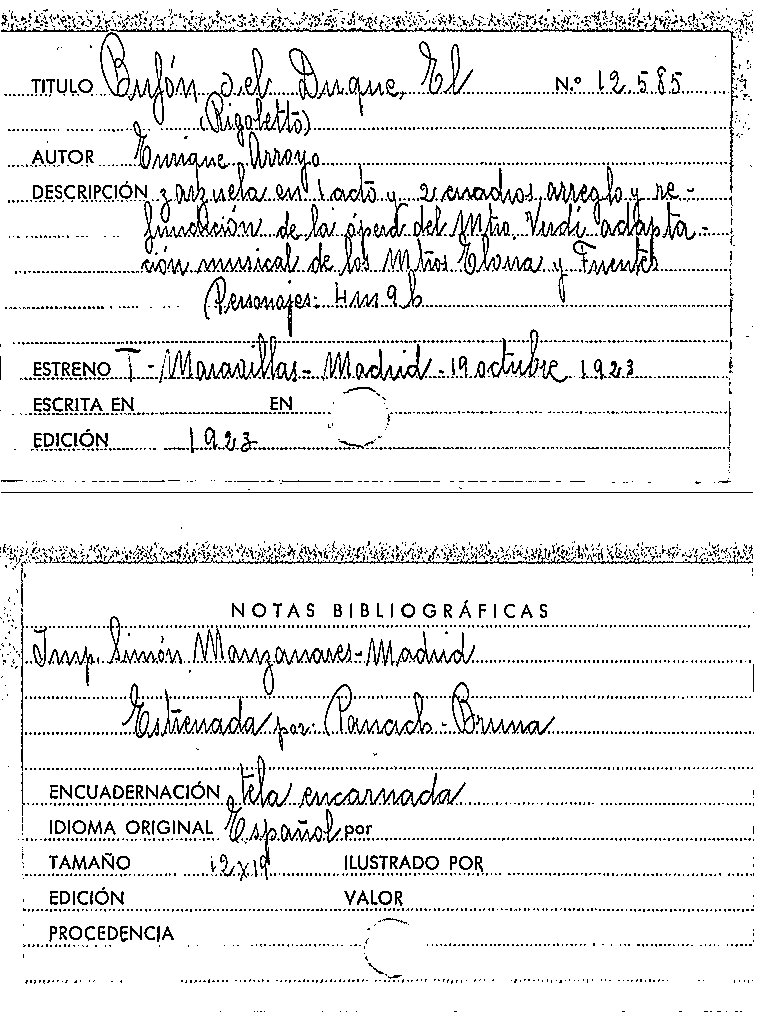 TITULO Bufón del Duque, El N.º 12.585
(Rigoletto)
AUTOR Enrique Arroyo
DESCRIPCIÓN zarzuela en 1 acto y 2 cuadros, arreglo y re-
fundición de la ópera del Mtro. Verdi adapta-
ción musical de los Mtros Elona y Fuentes
Personajes: 4 m 9 h
ESTRENO T - Maravillas - Madrid - 19 octubre 1923
ESCRITA EN EN
EDICIÓN 1923
NOTAS BIBLIOGRÁFICAS
Imp. Simón Manzanares - Madrid
Estrenada por: Panach - Bruna
ENCUADERNACIÓN tela encarnada
IDIOMA ORIGINAL Español por
TAMAÑO 12x19 ILUSTRADO POR
EDICIÓN VALOR
PROCEDENCIA